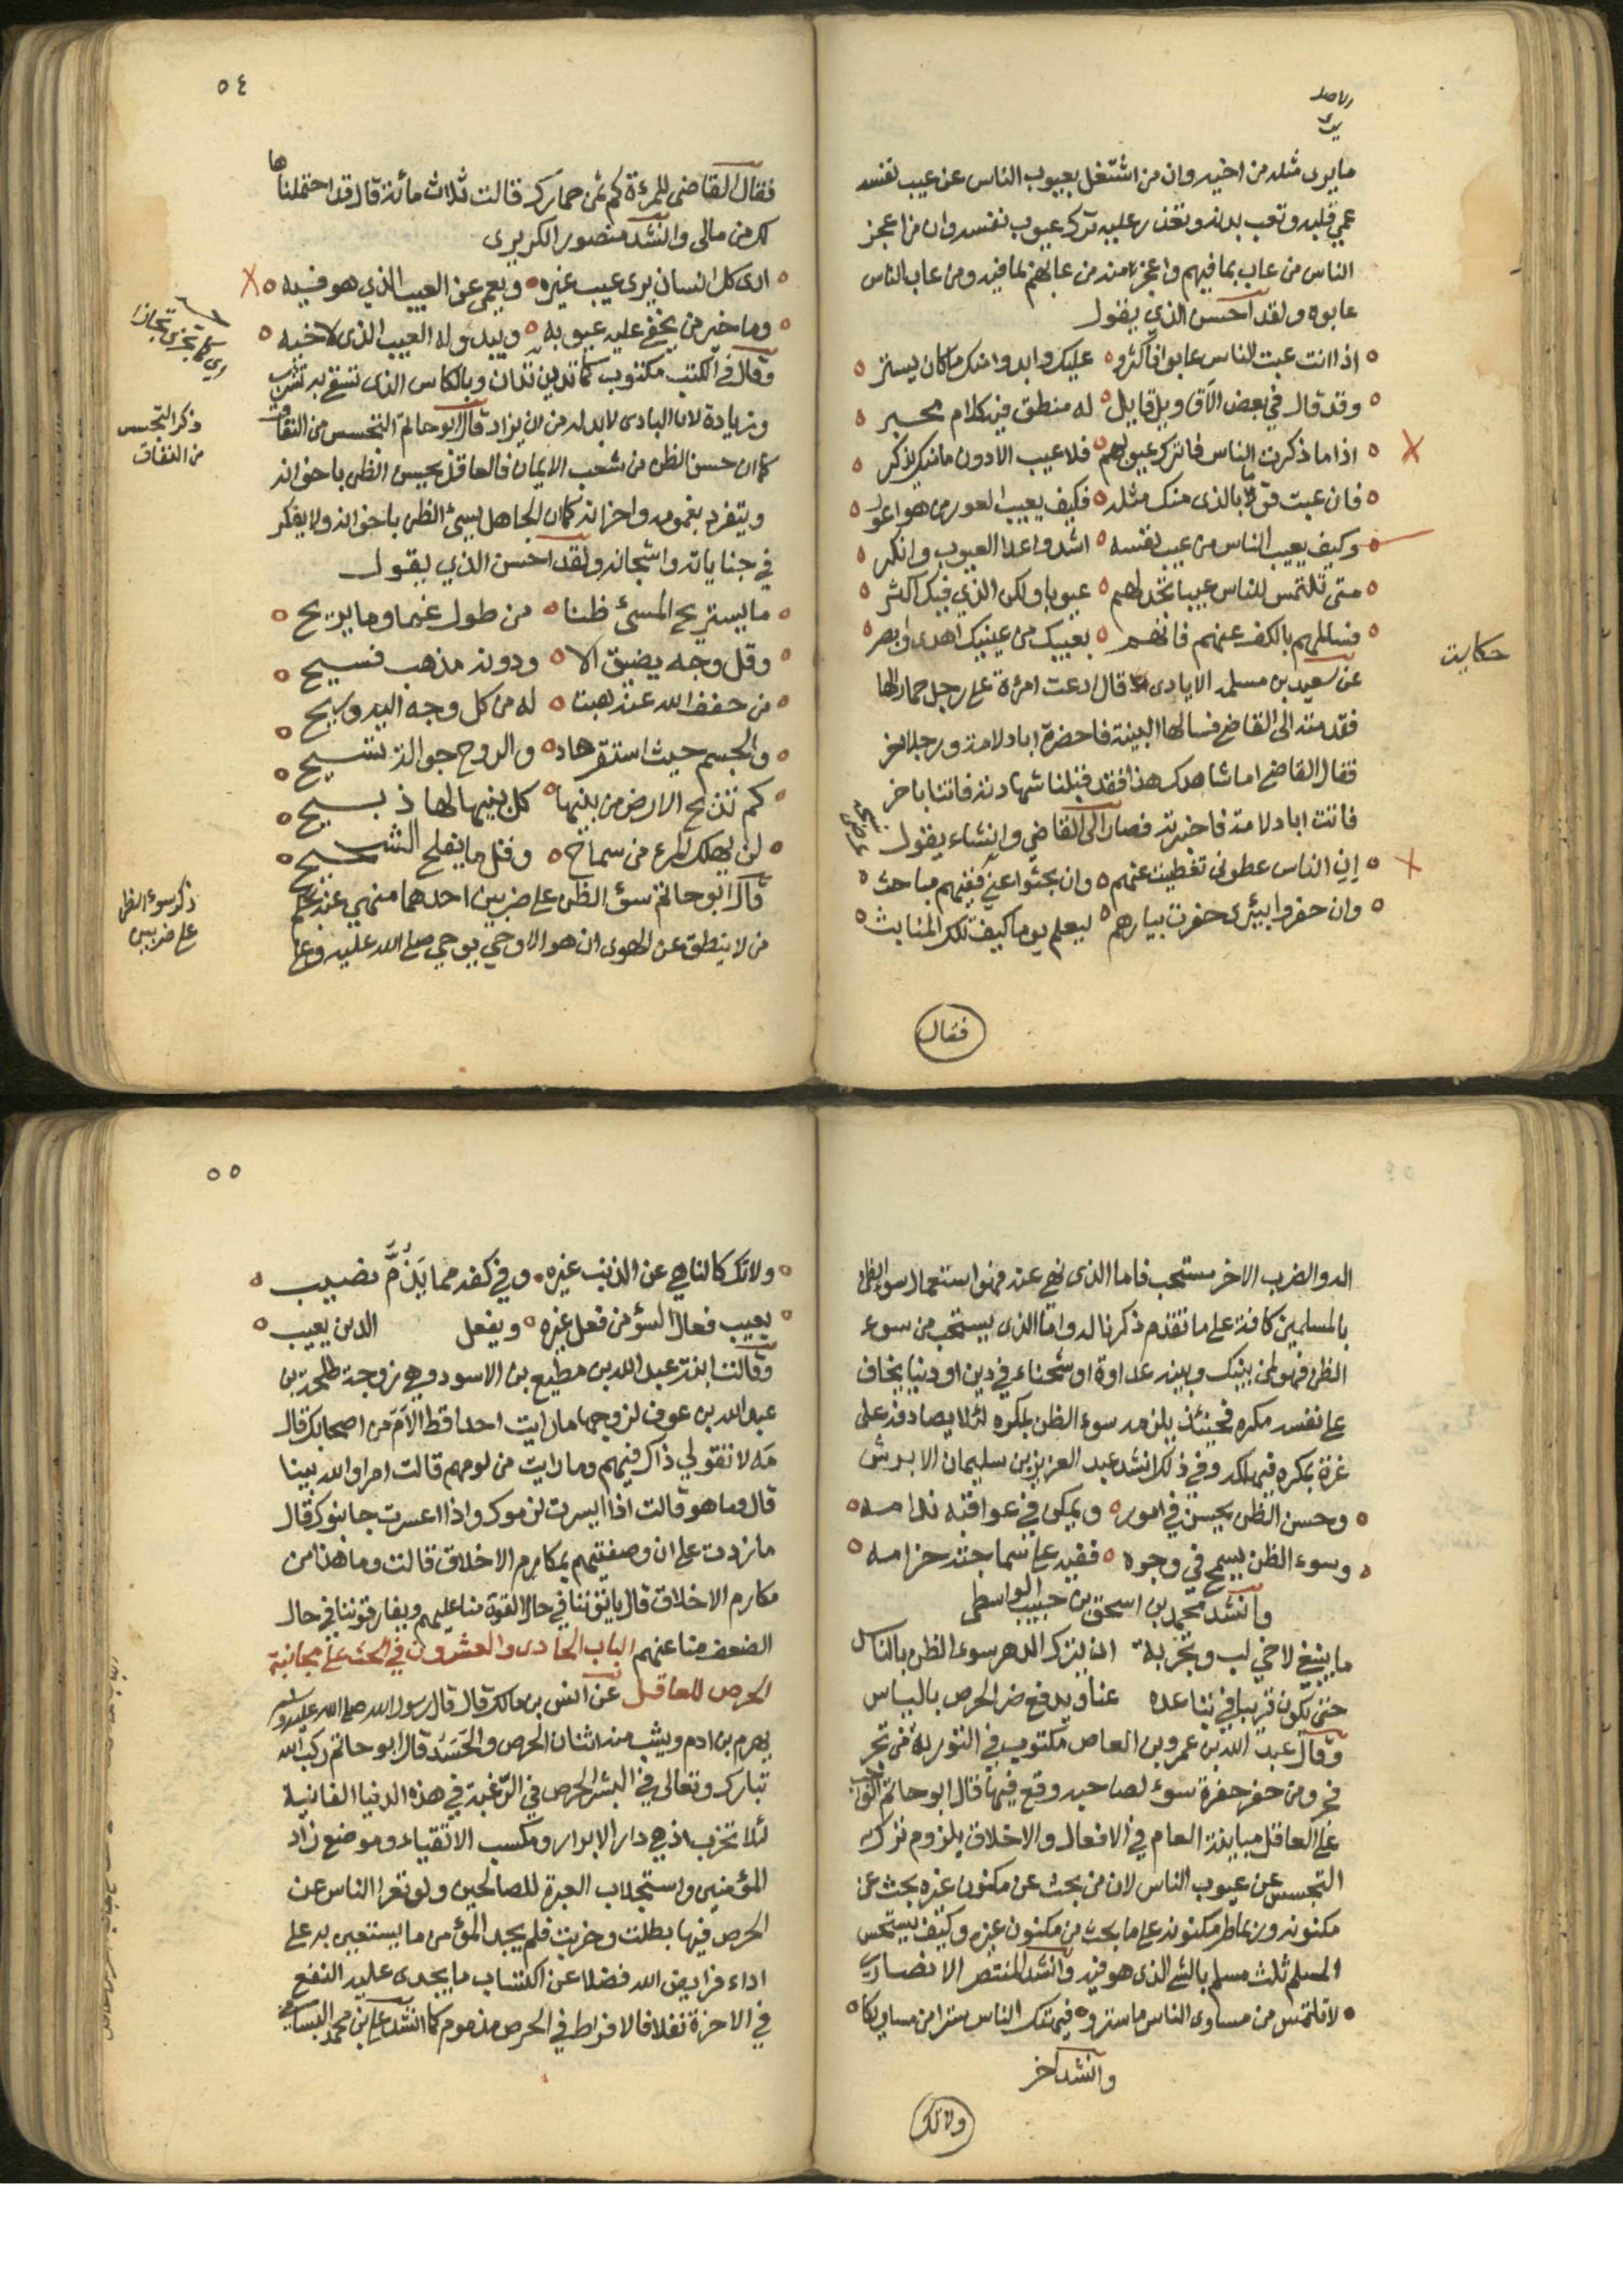 ما يرى مثله من اخيه وان من اشتغل بعيوب الناس عن عيب نفسه
عمي قلبه وتعب بدنه وتعذر عليه ترك عيوب نفسه وان من اعجز
الناس من عاب بما فيهم واعجز منه من عابهم بما فيه ومن عاب الناس
عابوه ولقد احسن الذي يقول
اذا انت عبت الناس عابوا فاكثروا عليك وابدوا منك ما كان يستر
وقد قال في بعض الاقاويل قايل له منطق فيه كلام محبر
اذا ما ذكرت الناس فاترك عيوبهم فلا عيب الا دون ما منك يذكر
فان عبت قوما بالذي منك مثله فكيف يعيب العور من هو اعور
وكيف يعيب الناس من عيب نفسه اشد واعدا العيوب وانكر
متى تلتمس للناس عيبا تجد لهم عيوبا ولكن الذي فيك اكثر
فسالمهم بالكف عنهم فانهم بعيبك من عينيك اهدى وابصر
حكايت
عن سعيد بن مسلمه الايادى قال ادعت امرءة على رجل حمارا لها
فقدمته الى القاضي فسالها البينة فاحضرت ابا دلامة ورجلا اخر
فقال القاضي اما شاهدك هذا فقد قبلنا شهادته فاتنا باخر
فاتت ابا دلامة فاخبرته فصار الى القاضي وانشاء يقول
ان الناس غطوني تغطيت عنهم وان بحثوا عني ففيهم مباحث
وان حفروا بيئرى حفرت بيارهم ليعلم يوما كيف تلك المنابث
فقال
٥٤
فقال القاضى للمرءة كم ثمن حمارك قالت ثلاث مائة قال قد احتملناها
لك من مالى وانشد منصور الكريزى
ارى كل انسان يرى عيب غيره ويعمى عن العيب الذي هو فيه
وما خير من يخفى عليه عيوبه ويبدو له العيب الذى لاخيه
وقال في الكتب مكتوب كما تدين تدان وبالكاس الذى تسقى به تشرب
وزيادة لان البادى لابد له من ان يزاد قال ابو حاتم التجسس من النفاق
ذكر التجسس
من النفاق
كما ان حسن الظن من شعب الايمان فالعاقل يحسن الظن باخوانه
ويتفرد بغمومه واحزانه كما ان الجاهل يسيء الظن باخوانه ولا يفكر
في جناياته واشجانه ولقد احسن الذي يقول
ما يستريح المسئ ظنا من طول غم وما يريح
وقل وجه يضيق الا ودونه مذهب فسيح
من خفف الله عنه هبت له من كل وجه اليه ريح
والجسم حيث استقر هاد والروح جوالة تسيح
كم تذبح الارض من بنيها كل بنيها لها ذبيح
لن يهلك المرء من سماح وقل ما يفلح الشحيح
قال ابو حاتم سوء الظن على ضربين احدهما منهي عنه بحكم
ذكر سوء الظن
على ضربين
من لا ينطق عن الهوى ان هو الا وحي يوحي صلى الله عليه وعلى
اله والضرب الاخر مستحب فاما الذى نهى عنه فهو استعمال سوء الظن
بالمسلمين كافة على ما تقدم ذكرنا له واما الذى يستحب من سوء
الظن فهو لمن بينك وبينه عداوة او شحناء في دين او دنيا يخاف
على نفسه مكره فحينئذ يلزمه سوء الظن بمكره لئلا يصادفه على
غرة بمكره فيهلكه وفي ذلك انشد عبد العزيز بن سليمان الابرش
وحسن الظن يحسن في امور ويمكن في عواقبه ندامه
وسوء الظن يسمج في وجوه ففيه على سماجته حزامه
وانشد محمد بن اسحق بن حبيب الواسطى
ما ينبغي لاخي لب وتجربة ان يترك الدهر سوء الظن بالناس
حتى تكون قريبا في تباعده عنا ويدفع ضر الحرص بالياس
وقال عبد الله بن عمرو بن العاص مكتوب في التورية من تجر
فجر ومن حفر حفرة سوء لصاحبه وقع فيها قال ابو حاتم الواجب
على العاقل مباينة العام في الافعال والاخلاق بلزوم ترك
التجسس عن عيوب الناس لان من بحث عن مكنون غيره بحث عن
مكنونه وربما طم مكنونه على ما بحث من مكنون غيره وكيف يستحسن
المسلم ثلث مسلم بالشي الذى هو فيه وانشد المنتصر الانصارى
لا تلتمس من مساوى الناس ما ستروا فيهتك الناس سترا من مساويكا
وانشد اخر
ولاتك
٥٥
ولاتك كالناهي عن الذنب غيره وفي كفه مما يذم نصيب
يعيب فعال السوء من فعل غيره ويفعل الذين يعيب
وقالت ابنة عبد الله بن مطيع بن الاسود وهي زوجة طلحة بن
عبد الله بن عوف لزوجها ما رايت احدا قط الأم من اصحابك قال
مه لا تقولي ذاك فيهم وما رايت من لومهم قالت امرا والله بينا
قال وما هو قالت اذا ايسرت لزموك واذا اعسرت جانبوك قال
ما زدت على ان وصفتيهم بمكارم الاخلاق قالت وما هذا من
مكارم الاخلاق قال ياتوننا في حال القوة منا عليهم ويفارقوننا في حال
الضعف منا عنهم الباب الحادى والعشرون في الحث على مجانبة
الحرص للعاقل عن انس بن مالك قال قال رسول الله صلى الله عليه وسلم
يهرم بن ادم ويشب منه اثنان الحرص والحسد قال ابو حاتم ركب الله
تبارك وتعالى في البشر الحرص في الرغبة في هذه الدنيا الفانية
لئلا تخرب اذ هي دار الابرار ومكسب الاتقياء وموضع زاد
المؤمنين واستجلاب العبرة للصالحين ولو تعرا الناس عن
الحرص فيها بطلت وخربت فلم يجد المؤمن ما يستعين به على
اداء فرايض الله فضلا عن اكتساب ما يجدى عليه النفع
في الاخرة نفلا فالافراط في الحرص مذموم كما انشد علي بن محمد البسامي